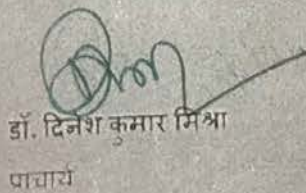 डॉ. दिनेश कुमार मिश्रा
प्राचार्य